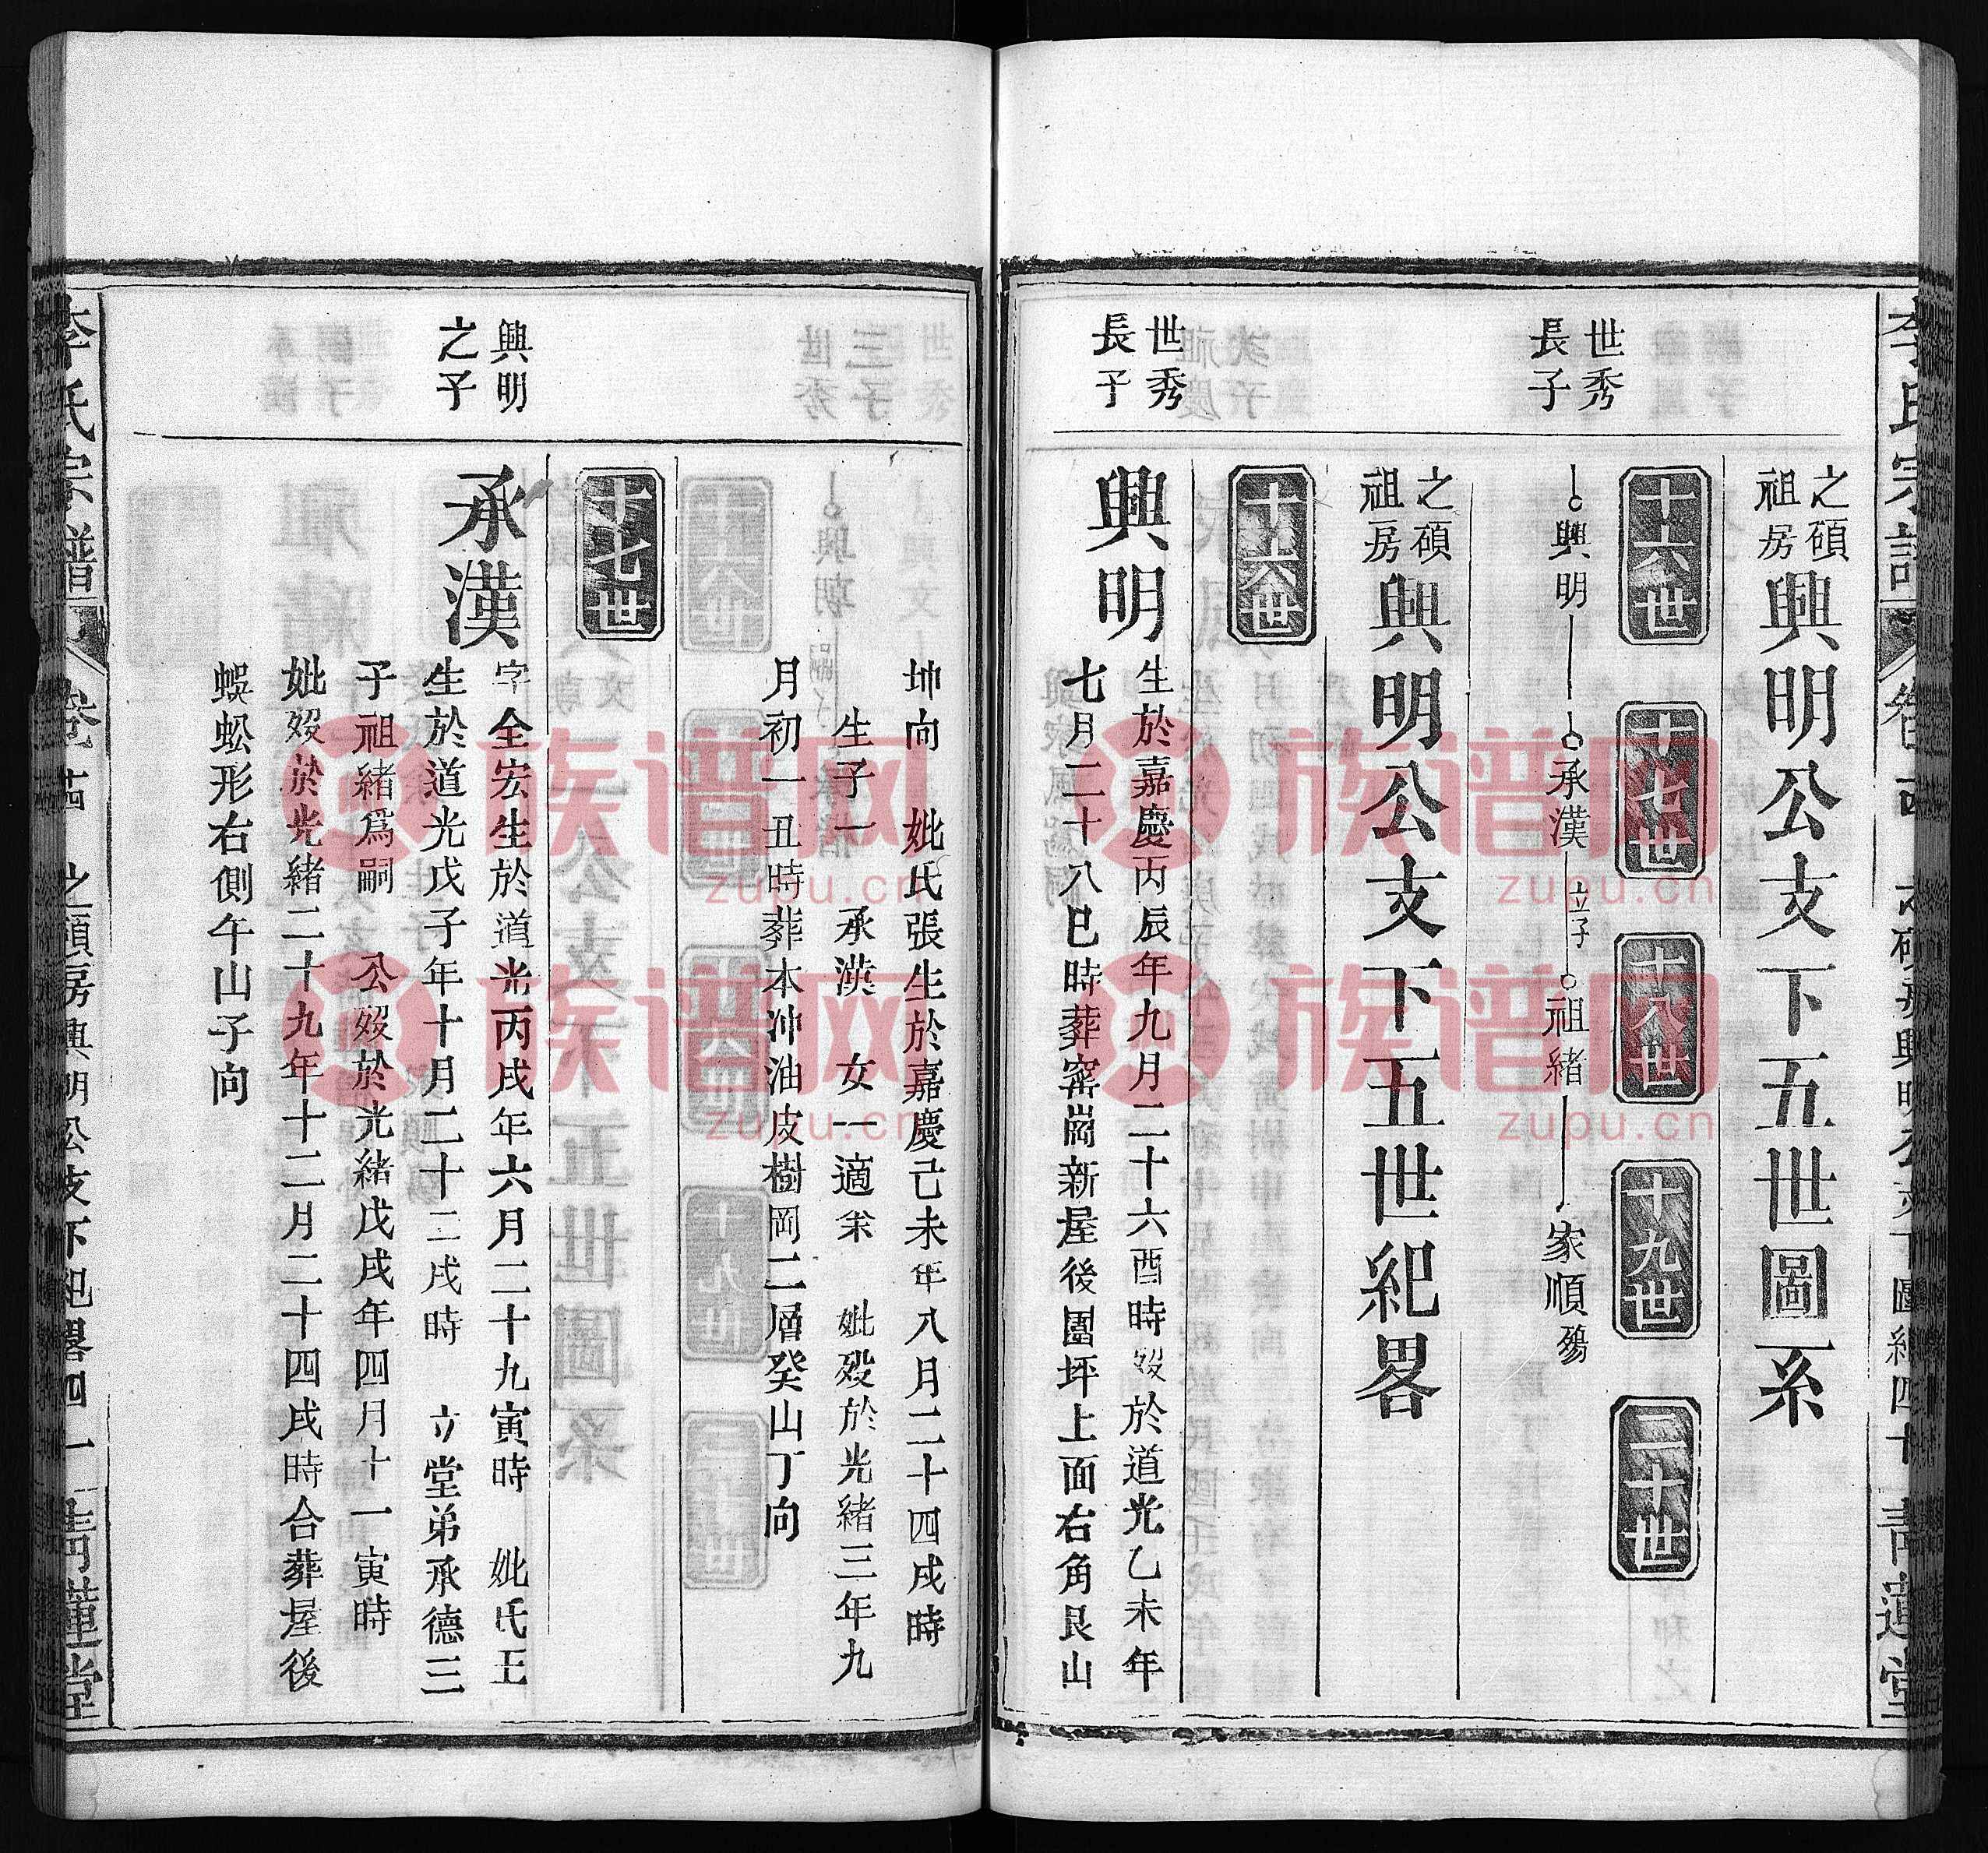 李氏宗譜
之碩祖房
興明公支下五世圖系
世秀長子
十六世
十七世
十八世
十九世
二十世
興明
承漢
立子
祖緒
家順殤
之碩祖房
興明公支下五世紀畧
十六世
世秀長子
興明
生於嘉慶丙辰年九月二十六酉時歿於道光乙未年
七月二十八巳時葬窰崗新屋後園坪上面右角艮山
坤向 妣氏張生於嘉慶己未年八月二十四戌時
生子一 承漢 女一適余 妣歿於光緒三年九
月初一丑時葬本冲油皮樹岡二層癸山丁向
十七世
興明之子
承漢
字全宏生於道光丙戌年六月二十九寅時 妣氏王
生於道光戊子年十月二十二戌時 立堂弟承德三
子祖緒爲嗣 公歿於光緒戊戌年四月十一寅時
妣歿於光緒二十九年十二月二十四戌時合葬屋後
蜈蚣形右側午山子向
李氏宗譜 卷廿四 之碩房興明公支下紀畧四一 青蓮堂
族谱网
zupu.cn
族谱网
zupu.cn
族谱网
zupu.cn
族谱网
zupu.cn